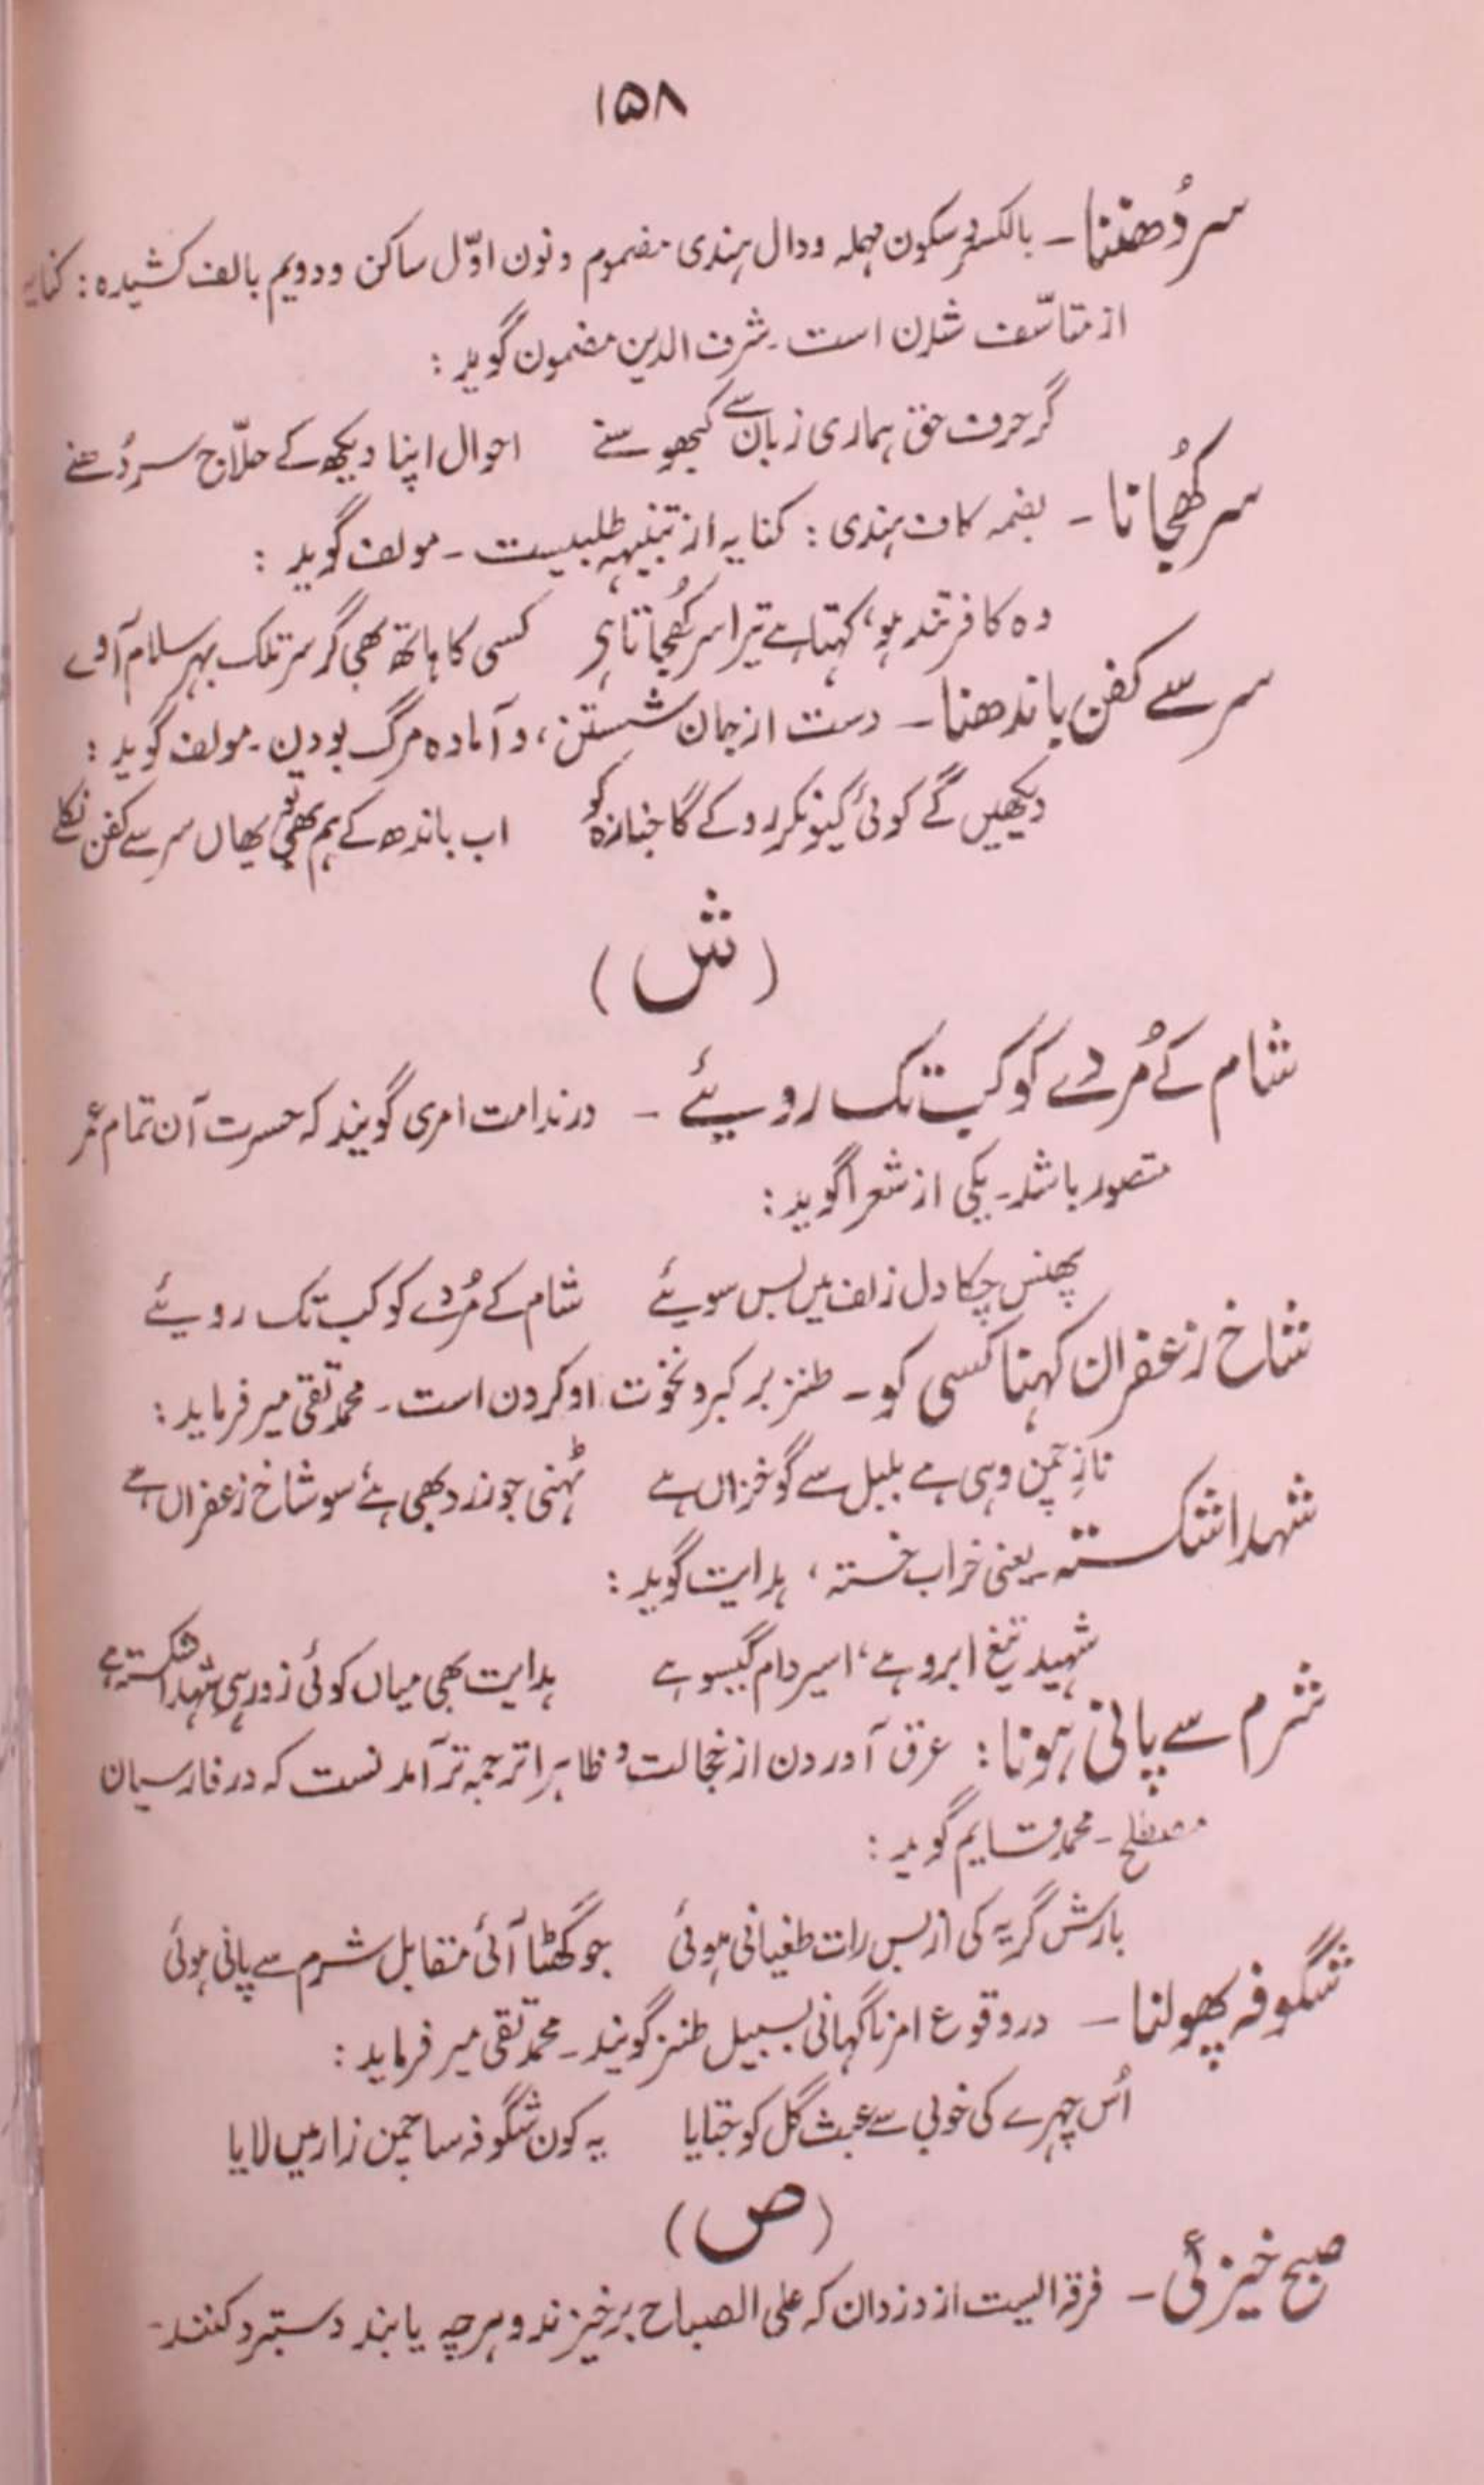 ۱۵۸
سر دُھننا ۔ بالکسر و سکون مہملہ و دال ہندی مضموم و نون اوّل ساکن و دویم بالف کشیدہ : کنایہ
از متاسّف شدن است ۔ شرف الدین مضمون گوید :
گر حرف حق ہماری زبان سے کبھو سنے احوال اپنا دیکھ کے حلّاج سر دُھنے
سر کھُجانا ۔ بضمہ کاف ہندی : کنایہ از تنبیہہ طلبیست ۔ مولف گوید :
وہ کافر تند ہو، کہتا ہے تیرا سر کھُجاتا ہی کسی کا ہاتھ بھی گر سر تلک بہر سلام آوے
سر سے کفن باندھنا ۔ دست از جان شستن، و آمادہ مرگ بودن ۔ مولف گوید :
دیکھیں گے کوئی کیونکر روکے گا جنازہ کو اب باندھ کے ہم بھی تو یھاں سر سے کفن نکلے
(ش)
شام کے مُردے کو کب تک روئیے ۔ در ندامت امری گویند کہ حسرت آن تمام عمر
متصور باشد ۔ یکی از شعرا گوید :
پھنس چکا دل زلف میں بس سوئیے شام کے مُردے کو کب تک روئیے
شاخ زعفران کہنا کسی کو ۔ طنز بر کبر و نخوت او کردن است ۔ محمد تقی میر فرماید :
نازِ چمن وہی ہے بلبل سے گو خزاں ہے ٹہنی جو زرد بھی ہے سو شاخ زعفراں ہے
شہدا شکستہ ۔ یعنی خراب خستہ، ہدایت گوید :
شہید تیغ ابرو ہے، اسیر دام گیسو ہے ہدایت بھی میاں کوئی زور ہی شہدا شکستہ ہے
شرم سے پانی ہونا : عرق آوردن از خجالت و ظاہرا ترجمہ تر آمدنست کہ در فارسیان
مصطلح ۔ محمد قایم گوید :
بارش گریہ کی از بس رات طغیانی ہوئی جو گھٹا آئی مقابل شرم سے پانی ہوئی
شگوفہ پھولنا ۔ در وقوع امر ناگہانی بسبیل طنز گویند ۔ محمد تقی میر فرماید :
اُس چہرے کی خوبی سے عبث گل کو جتایا یہ کون شگوفہ سا چمن زار میں لایا
(ص)
صبح خیزئی ۔ فرقہ الیست از دزدان کہ علی الصباح برخیزند و ہرچہ یابند دستبرد کنند ۔